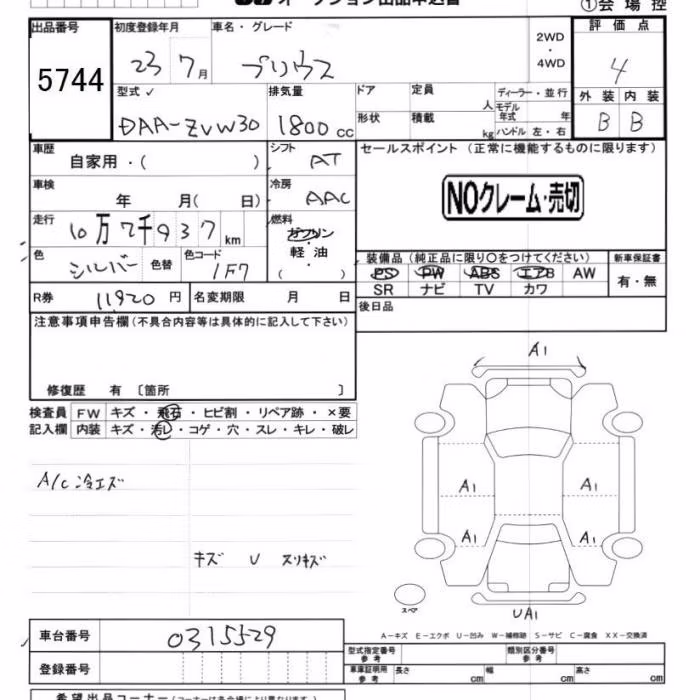 オークション出品申込書 ①会場控
出品番号 初度登録年月 車名・グレード 2WD・4WD 評価点
5744 23 7月 プリウス 4
型式 排気量 ドア 定員 人 ディーラー・並行 外装 内装
DAA-ZVW30 1800cc 形状 積載 kg モデル年式 年 ハンドル 左・右 B B
車歴 自家用・( ) シフト AT セールスポイント (正常に機能するものに限ります)
車検 年 月( 日) 冷房 AAC NOクレーム・売切
走行 10万7千937km 燃料 ガソリン・軽油( )
色 シルバー 色替 色コード 1F7 装備品 (純正品に限り○をつけてください) 新車保証書
PS PW ABS エアB AW 有・無
R券 11920円 名変期限 月 日 SR ナビ TV カワ
注意事項申告欄(不具合内容等は具体的に記入して下さい) 後日品
修復歴 有 〔箇所 〕
A1
検査員 FW キズ・飛石・ヒビ割・リペア跡・×要
記入欄 内装 キズ・汚レ・コゲ・穴・スレ・キレ・破レ
A/C冷エズ
A1 A1
A1 A1
キズ U スリキズ
スペア
UA1
A-キズ E-エクボ U-凹み W-補修跡 S-サビ C-腐食 XX-交換済
車台番号 0315529
型式指定番号 参考 類別区分番号 参考
登録番号 車庫証明用 参考 長さ cm 幅 cm 高さ cm
希望出品コーナー(コーナーは各会場により異なります)